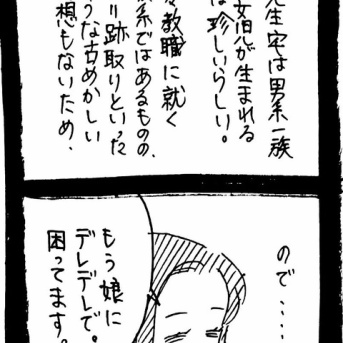 先生宅は男系一族
女児が生まれる
は珍しいらしい。
教職に就く
系ではあるものの、
り跡取りといった
うな古めかしい
想もないため、
ので・・・・・
もう娘に
デレデレで。
困ってます。